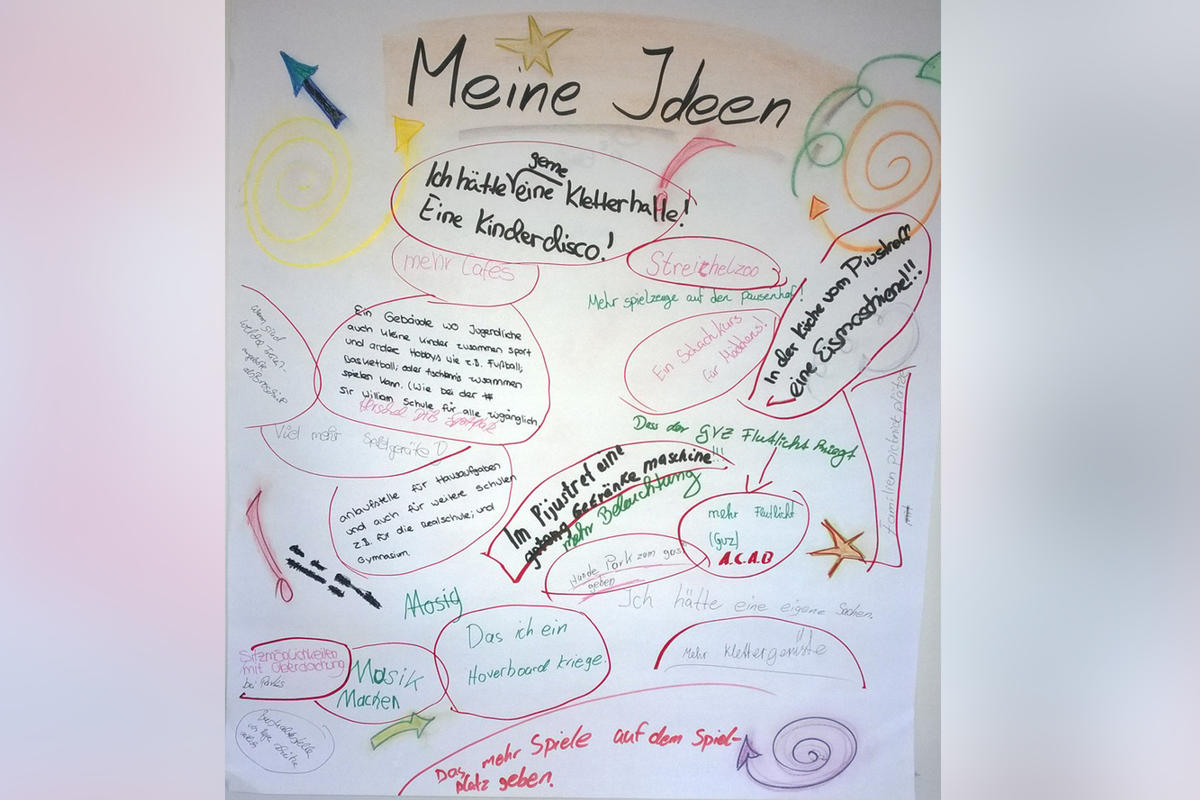 Meine Ideen
gerne
Ich hätte eine Kletterhalle!
Eine Kinderdisco!
mehr Cafés
Streichelzoo
Mehr spielzeuge auf den Pausenhof!
In der Küche vom Piustreff
eine Eismaschiene!!!
Ein Schachkurs
für Mädchens!
Ein Gebäude wo Jugendliche
auch kleine Kinder zusammen sport
und andere Hobbys wie z.B. Fußball,
Basketball, oder tischtennis zusammen
spielen kann. (Wie bei der #
Sir william Schule für alle zugänglich
Wann sind
Viel mehr Spielgeräte
Dass der GVZ Flutlicht kriegt
Familien picknick plätze
anlaufstelle für Hausaufgaben
und auch für weitere schulen
z.B. für die Realschule, und
Gymnasium
Im Pijustref eine
Getränke maschine!!!
mehr Beleuchtung
mehr Flutlicht
(GVZ)
A.C.A.B
Hunde Park zum gassi
geben
Ich hätte eine eigene Sachen.
Mosig
Das ich ein
Hoverboard kriege.
Mehr Klettergerüste
Sitzmöglichkeiten
mit Überdachung
bei Parks
Musik
Machen
Das mehr Spiele auf dem Spiel-
platz geben.